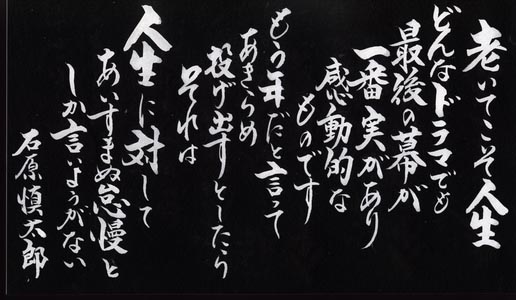 老いてこそ人生
どんなドラマでも
最後の幕が
一番実があり
感動的な
ものです
もう年だと言って
あきらめ
投げ出すとしたら
それは
人生に対して
あいすまぬ怠慢と
しか言いようがない
石原慎太郎